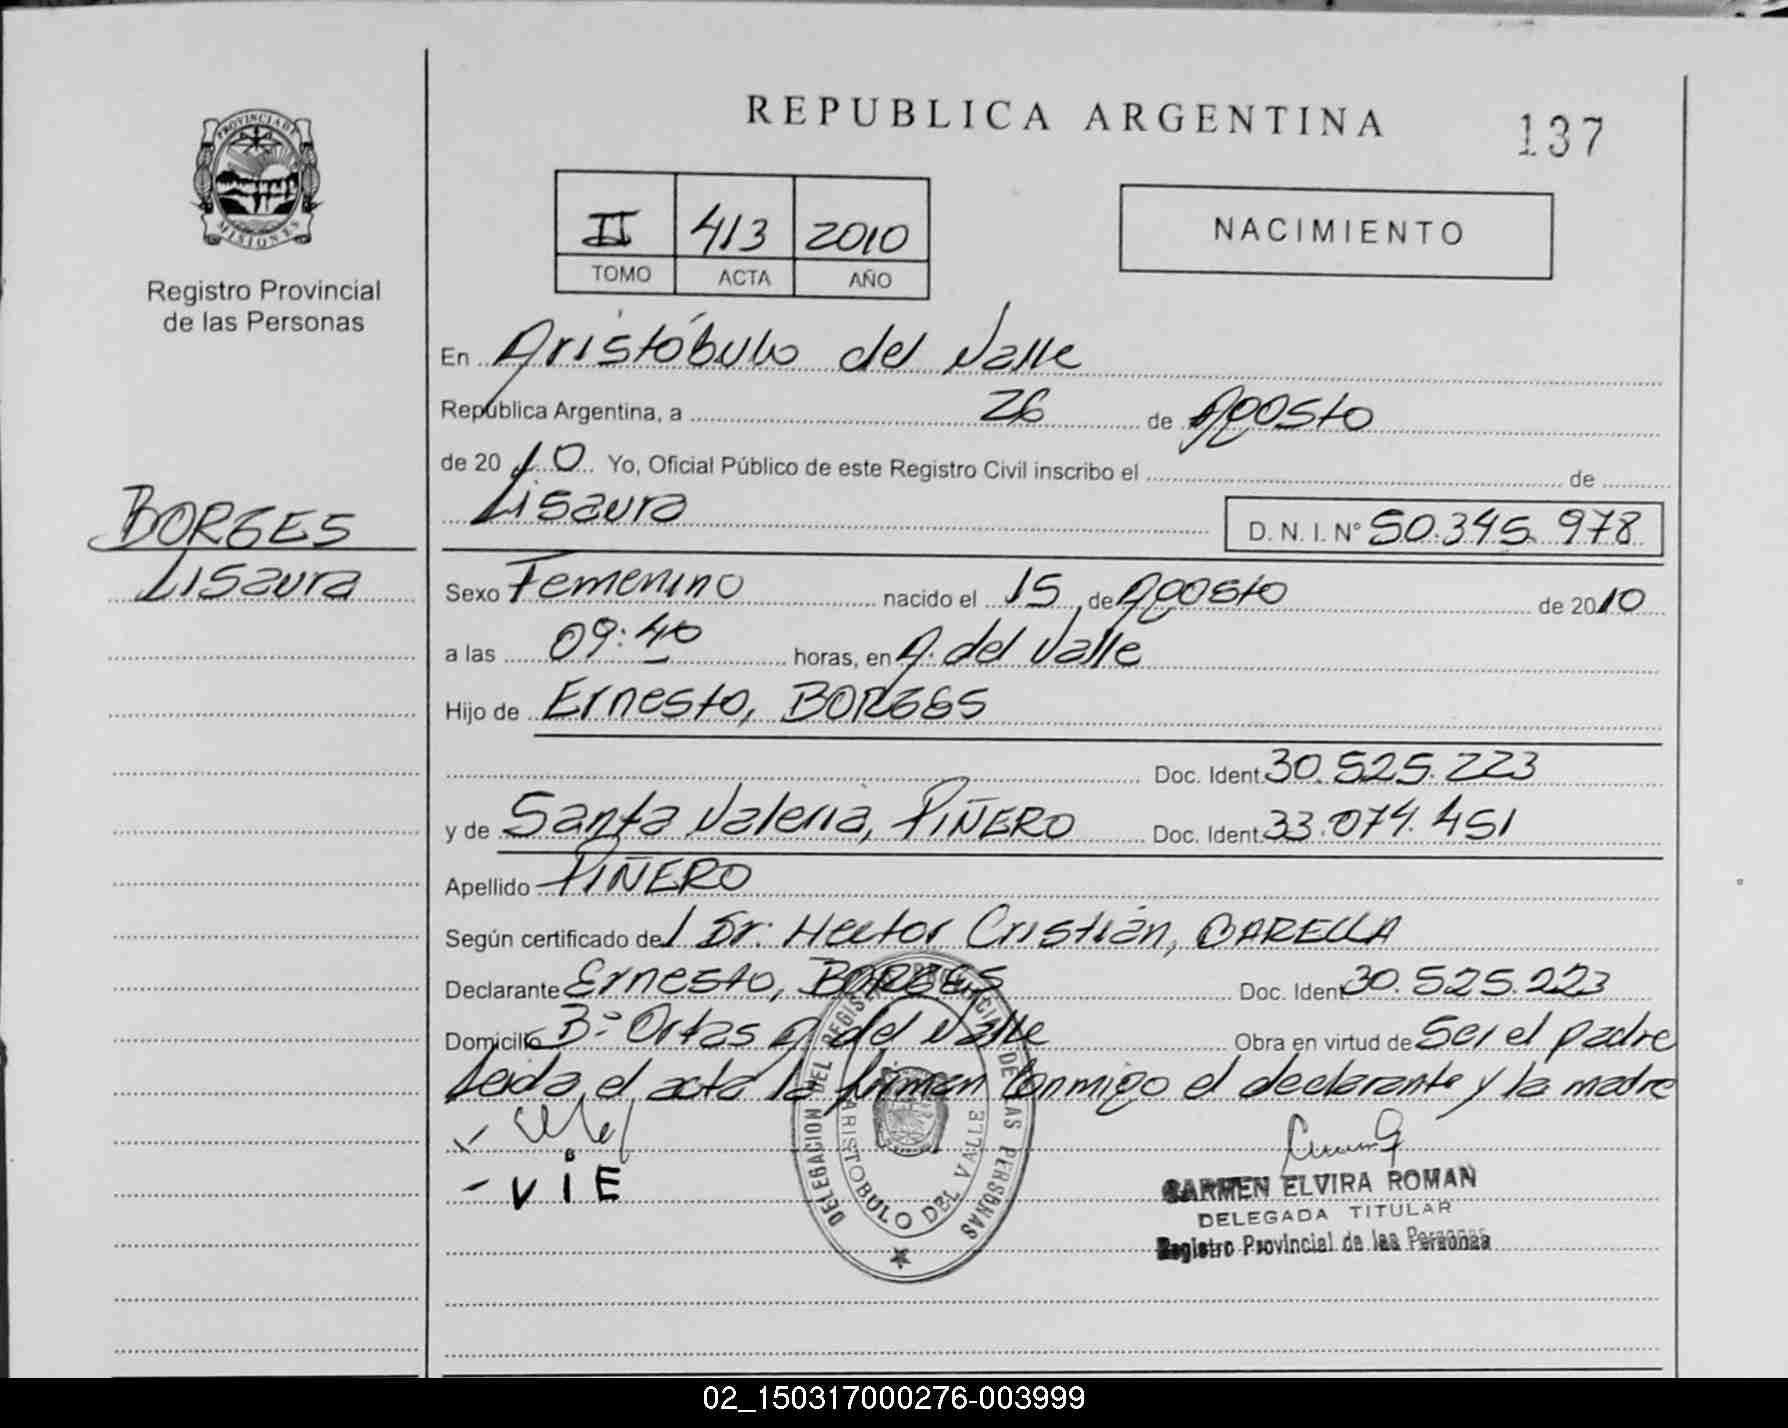 REPUBLICA ARGENTINA
137
PROVINCIA DE
MISIONES
Registro Provincial
de las Personas
II 413 2010
TOMO ACTA AÑO
NACIMIENTO
En Aristóbulo del Valle
República Argentina, a 26 de Agosto
de 20 10 Yo, Oficial Público de este Registro Civil inscribo el de
Lisaura D. N. I. N° 50.345.978
BORGES
Lisaura
Sexo Femenino nacido el 15 de Agosto de 2010
a las 09:40 horas, en A. del Valle
Hijo de Ernesto, BORGES
Doc. Ident. 30.525.223
y de Santa Valeria, PIÑERO Doc. Ident. 33.074.451
Apellido PIÑERO
Según certificado del Dr. Hector Cristián, BARELLA
Declarante Ernesto, BORGES Doc. Ident. 30.525.223
Domicilio B° Ortas A. del Valle Obra en virtud de Ser el padre
Leida el acta la firman conmigo el declarante y la madre
- V i E
DELEGACION DEL REGISTRO PROVINCIAL DE LAS PERSONAS
ARISTOBULO DEL VALLE
CARMEN ELVIRA ROMAN
DELEGADA TITULAR
Registro Provincial de las Personas
02_150317000276-003999